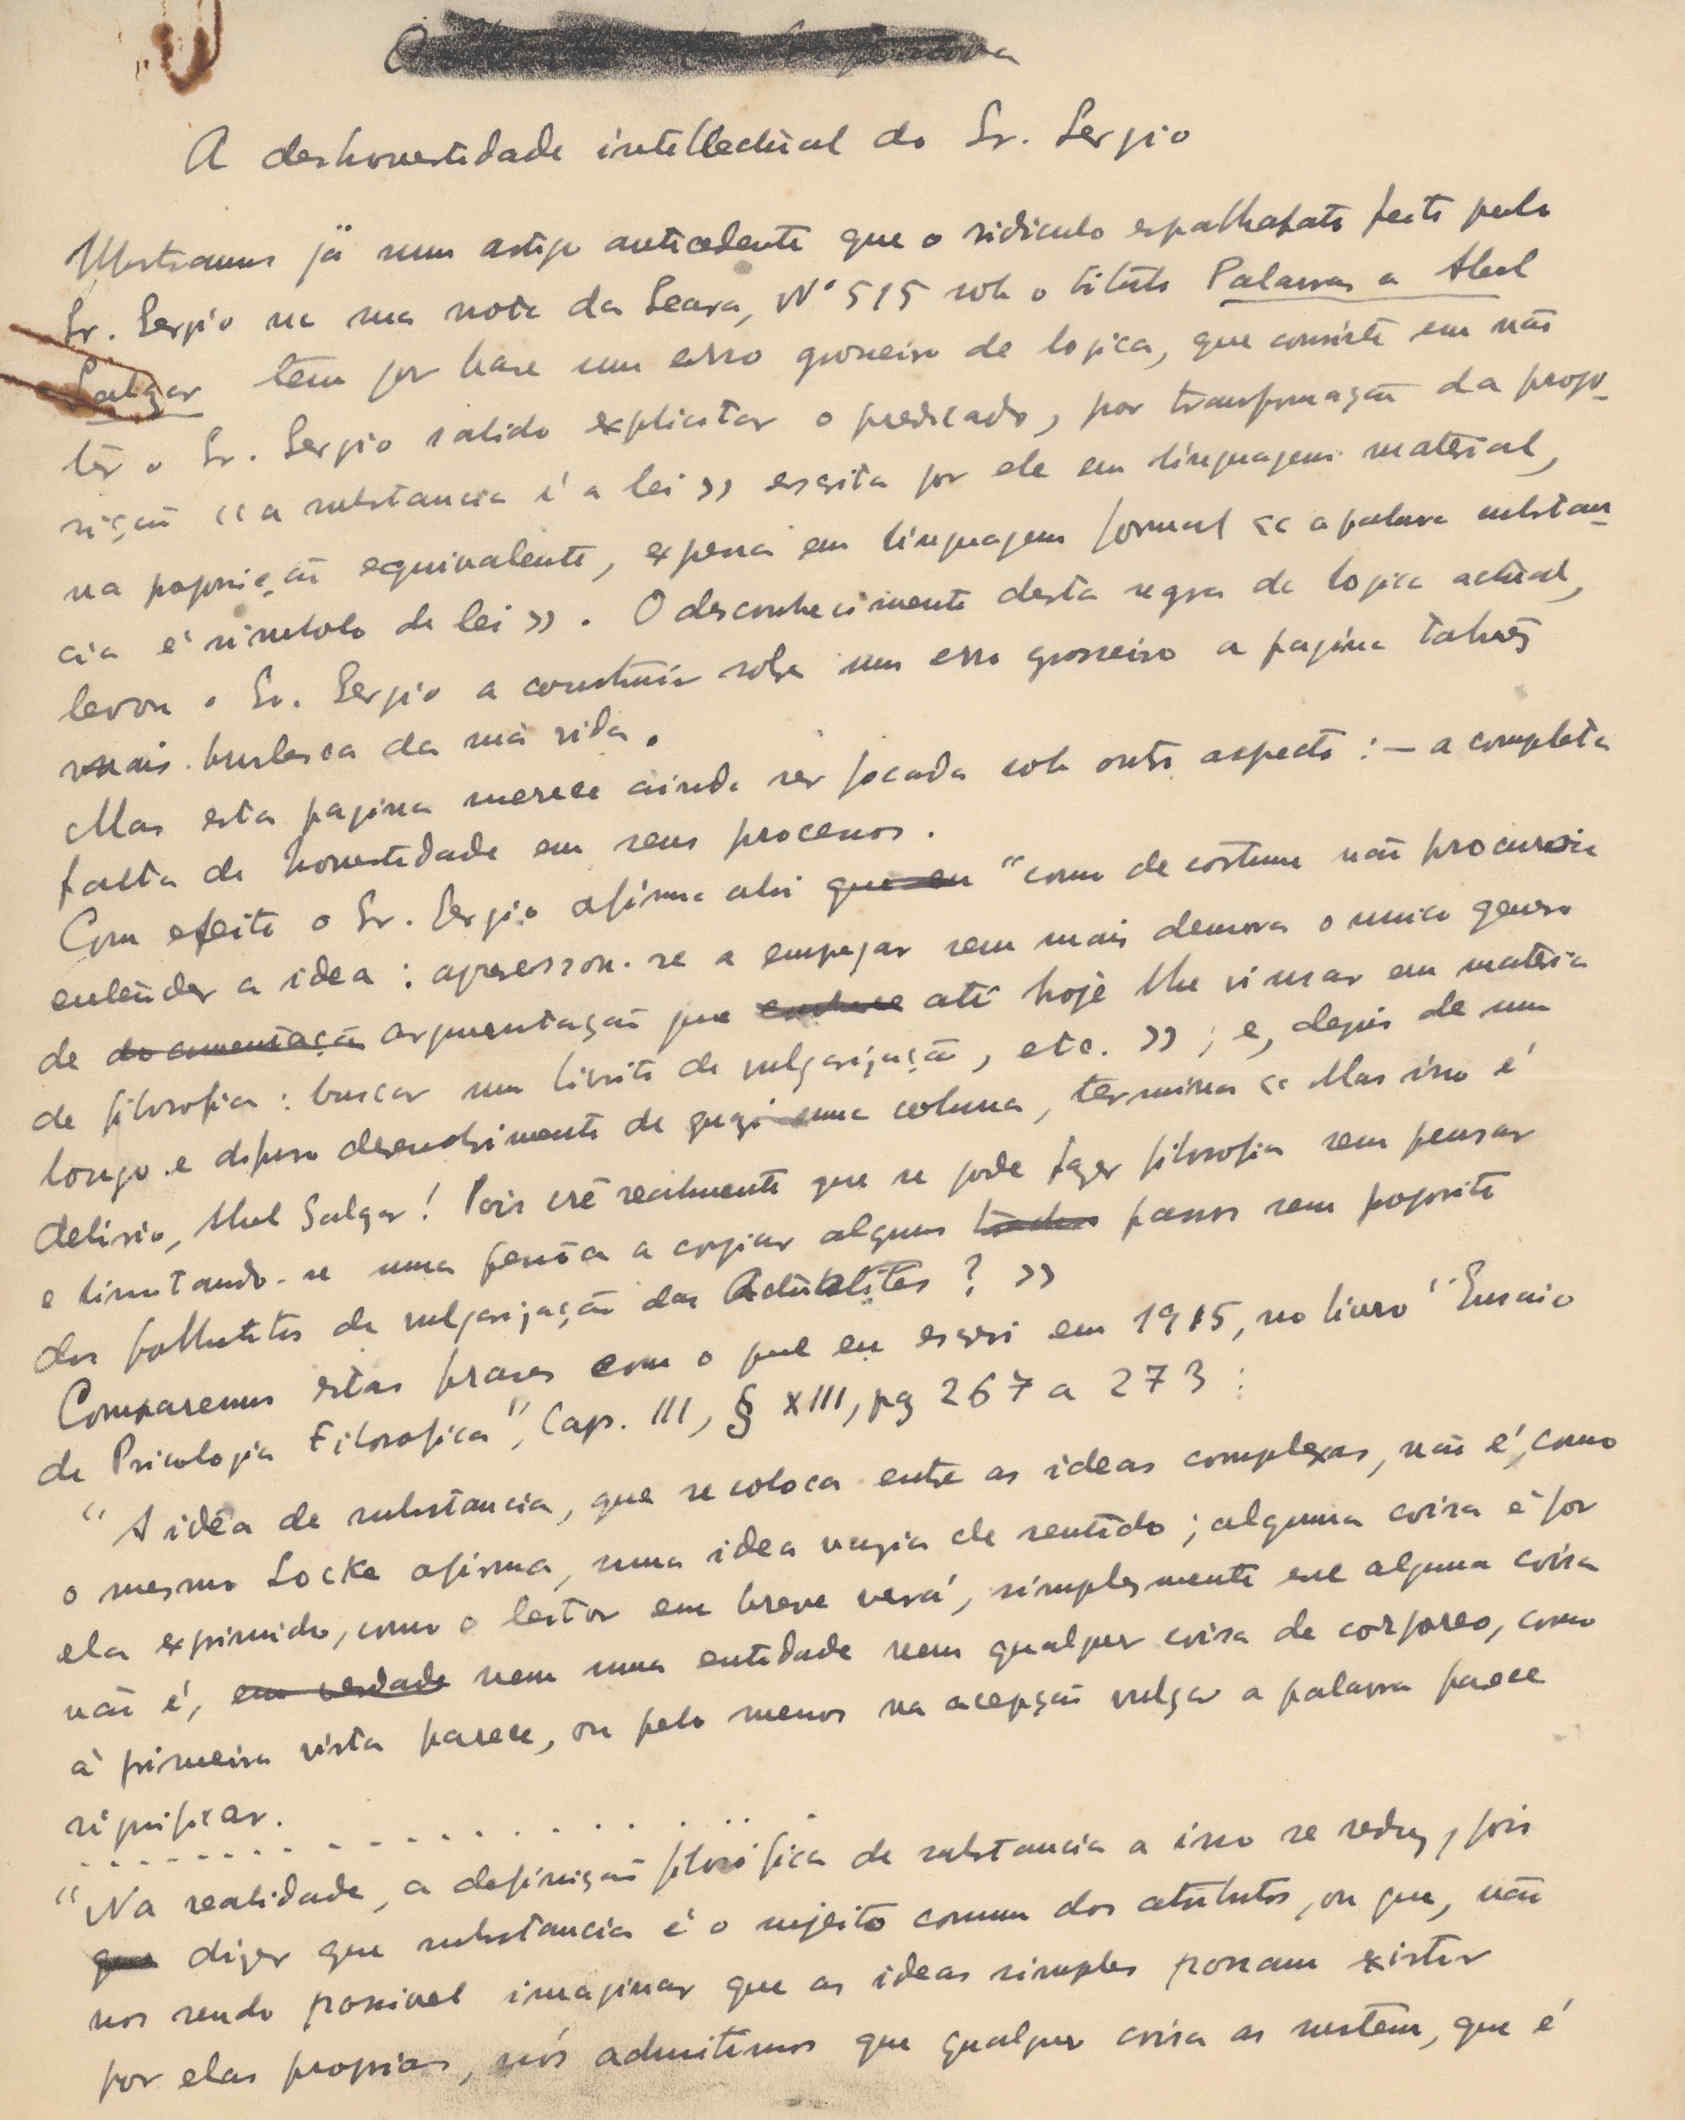 A deshonestidade intellectual do Sr. Sergio
Mostramos já num artigo antecedente que o ridiculo espalhafato feito pelo
Sr. Sergio na sua nota da Seara, Nº 515 sob o titulo Palavras a Abel
Salazar tem por base um erro grosseiro de logica, que consiste em não
ter o Sr. Sergio sabido explicitar o predicado, por transformação da propo-
sição «a substancia é a lei» escrita por ele em linguagem material,
na proposição equivalente, expressa em linguagem formal «a palavra substan-
cia é simbolo de lei». O desconhecimento desta regra de logica actual,
levou o Sr. Sergio a construir sobre um erro grosseiro a pagina talvez
mais burlesca da sua vida.
Mas esta pagina merece ainda ser focada sob outro aspecto: — a completa
falta de honestidade em seus processos.
Com efeito o Sr. Sergio afirma ahi que eu "como de costume não procurou
entender a idea: apressou-se a empregar sem mais demora o unico genero
de documentação argumentação que até hoje lhe vi usar em materia
de filosofia: buscar um livrito de vulgarização, etc.»; e, depois de um
longo e difuso desenvolvimento de quasi uma coluna, termina «Mas isso é
delirio, Abel Salazar! Pois crê realmente que se pode fazer filosofia sem pensar
e limitando-se uma pessoa a copiar alguns passos sem proposito
dos folhetitos de vulgarização das Actualités?»
Comparemos estas frases com o que eu escrevi em 1915, no livro "Ensaio
de Psicologia Filosofica", Cap. III, § XIII, pg 267 a 273:
"A idéa de substancia, que se coloca entre as ideas complexas, não é, como
o mesmo Locke afirma, uma idea vazia de sentido; alguma coisa é por
ela exprimido, como o leitor em breve verá, simplesmente esse alguma coisa
não é, em verdade nem uma entidade nem qualquer coisa de corporeo, como
à primeira vista parece, ou pelo menos na acepção vulgar a palavra parece
significar.
. . . . . . . . . . . . . . . . . . . .
"Na realidade, a definição filosófica de substancia a isso se reduz, pois
que dizer que substancia é o sujeito comum dos atributos, ou que, não
nos sendo possivel imaginar que as ideas simples possam existir
por elas proprias, nós admitimos que qualquer coisa as sustem, que é